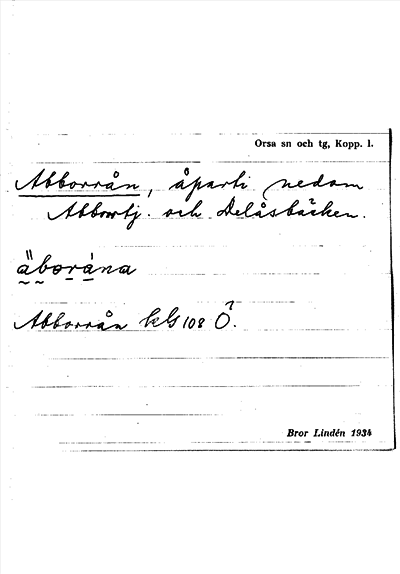 Orsa sn och tg, Kopp. l.
Abborrån, åparti nedom
Abborrtj. och Delåsbäcken.
äborána
Abborrån 108 Ö.
Bror Lindén 1934